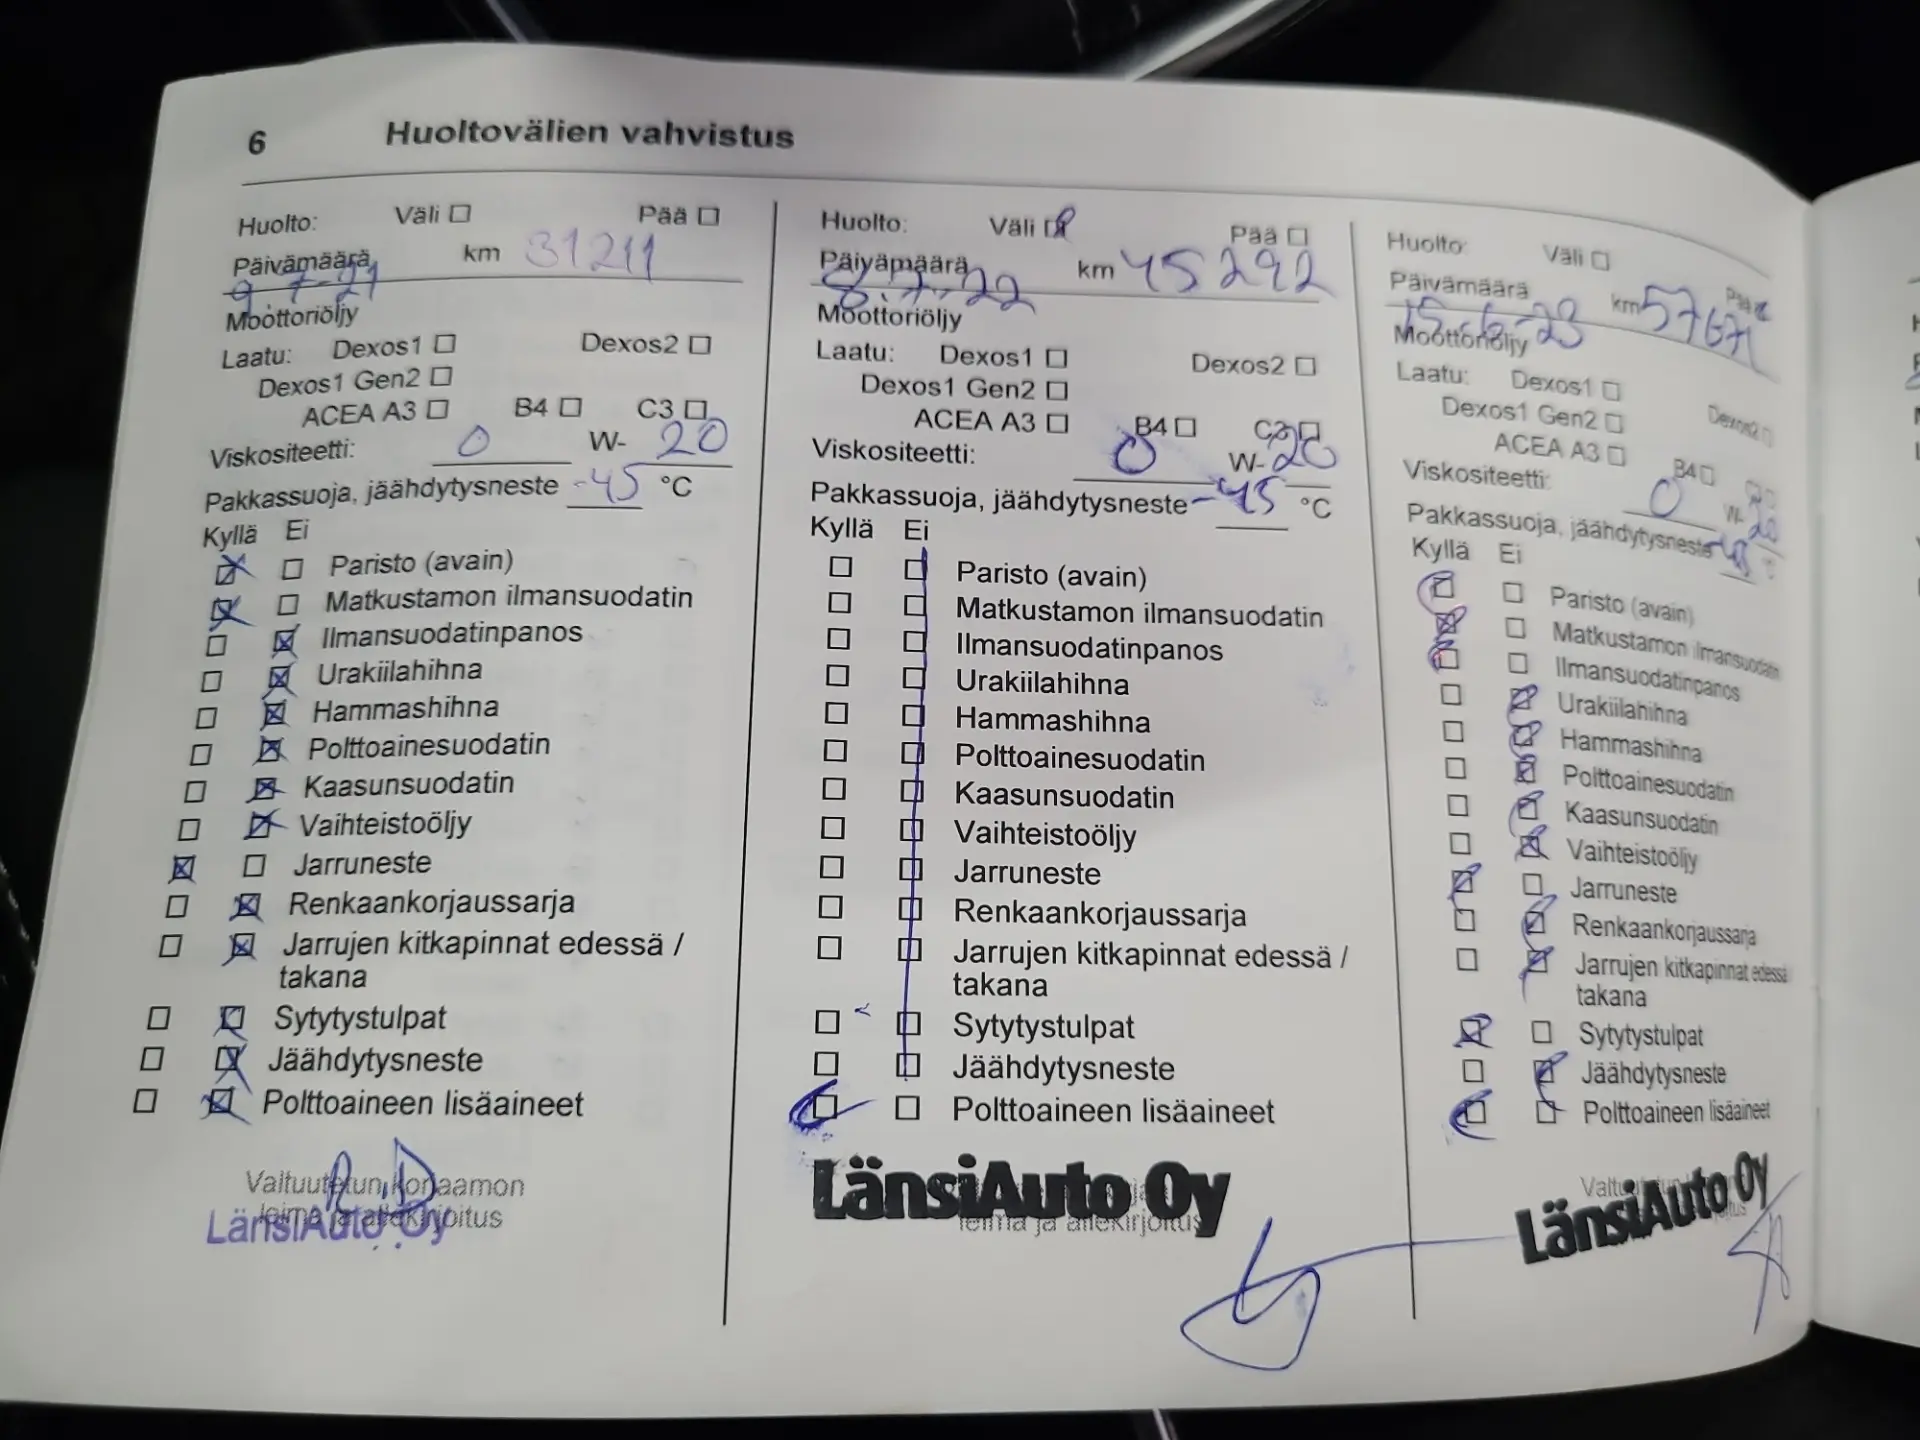 6 Huoltovälien vahvistus
Huolto: Väli Pää
Päivämäärä km 31211
9.7-21
Moottoriöljy
Laatu: Dexos1 Dexos2
Dexos1 Gen2
ACEA A3 B4 C3
Viskositeetti: 0 W- 20
Pakkassuoja, jäähdytysneste -45 °C
Kyllä Ei
Paristo (avain)
Matkustamon ilmansuodatin
Ilmansuodatinpanos
Urakiilahihna
Hammashihna
Polttoainesuodatin
Kaasunsuodatin
Vaihteistoöljy
Jarruneste
Renkaankorjaussarja
Jarrujen kitkapinnat edessä /
takana
Sytytystulpat
Jäähdytysneste
Polttoaineen lisäaineet
Valtuutetun korjaamon
leima ja allekirjoitus
LänsiAuto Oy
Huolto: Väli Pää
Päivämäärä km 45292
8.7-22
Moottoriöljy
Laatu: Dexos1 Dexos2
Dexos1 Gen2
ACEA A3 B4 C3
Viskositeetti: 0 W- 20
Pakkassuoja, jäähdytysneste -45 °C
Kyllä Ei
Paristo (avain)
Matkustamon ilmansuodatin
Ilmansuodatinpanos
Urakiilahihna
Hammashihna
Polttoainesuodatin
Kaasunsuodatin
Vaihteistoöljy
Jarruneste
Renkaankorjaussarja
Jarrujen kitkapinnat edessä /
takana
Sytytystulpat
Jäähdytysneste
Polttoaineen lisäaineet
LänsiAuto Oy
leima ja allekirjoitus
Huolto: Väli Pää
Päivämäärä km 57671
15-6-23
Moottoriöljy
Laatu: Dexos1 Dexos2
Dexos1 Gen2
ACEA A3 B4
Viskositeetti: 0 W- 20
Pakkassuoja, jäähdytysneste
Kyllä Ei
Paristo (avain)
Matkustamon ilmansuodatin
Ilmansuodatinpanos
Urakiilahihna
Hammashihna
Polttoainesuodatin
Kaasunsuodatin
Vaihteistoöljy
Jarruneste
Renkaankorjaussarja
Jarrujen kitkapinnat edessä
takana
Sytytystulpat
Jäähdytysneste
Polttoaineen lisäaineet
LänsiAuto Oy